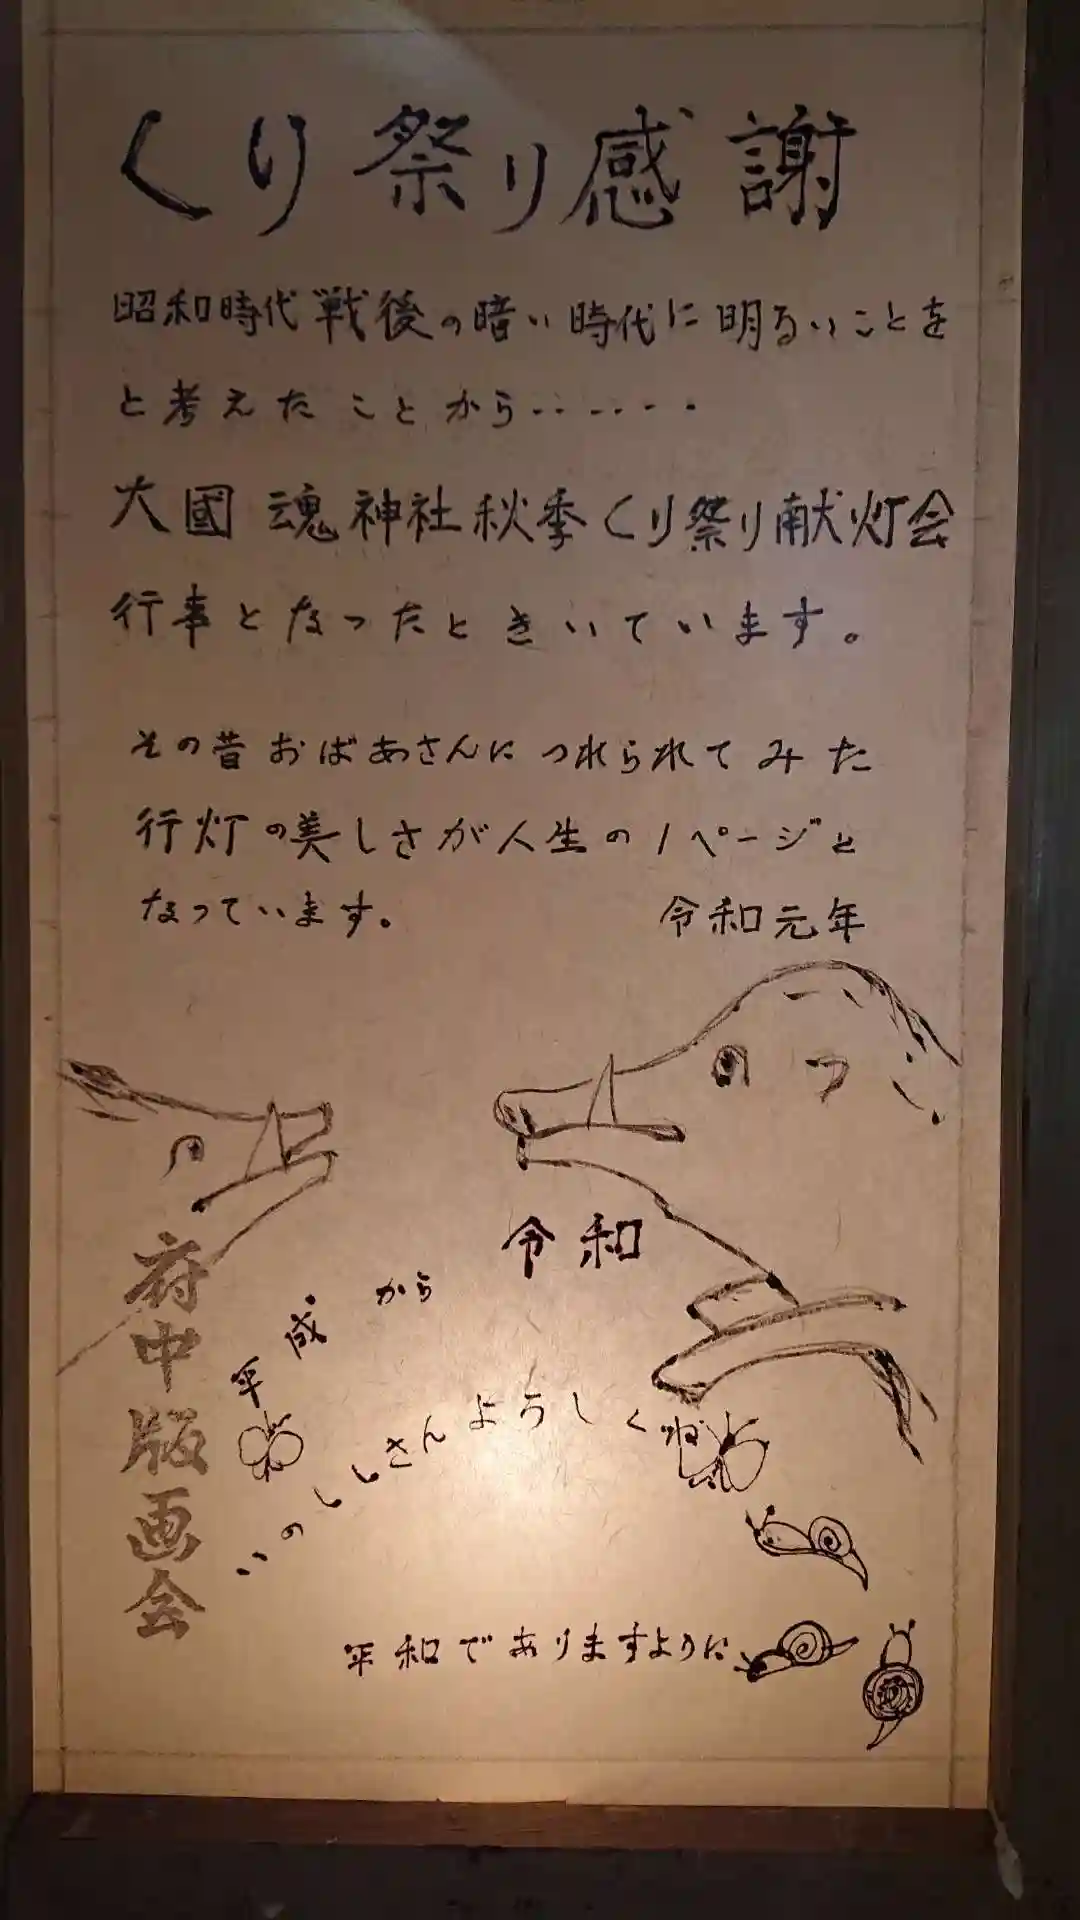 くり祭り感謝
昭和時代戦後の暗い時代に明るいことを
と考えたことから‥‥‥
大國魂神社秋季くり祭り献灯会
行事となったときいています。
その昔おばあさんにつれられてみた
行灯の美しさが人生の1ページと
なっています。 令和元年
平成から令和
いのししさんよろしくね
平和でありますように
府中版画会